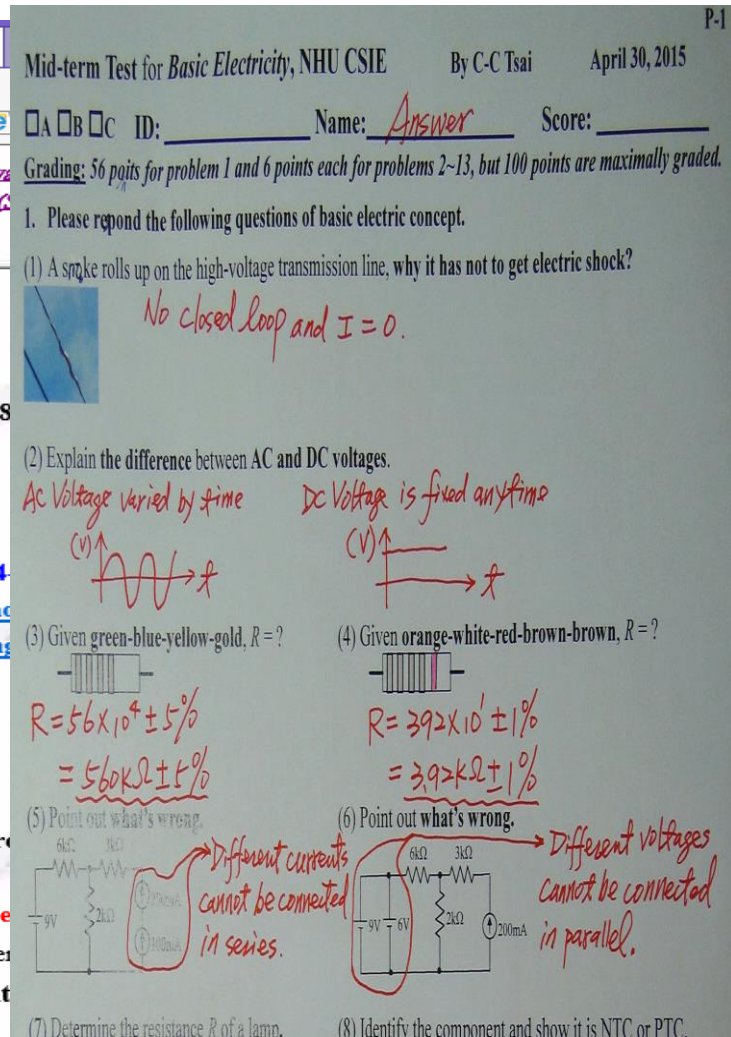 P-1
Mid-term Test for Basic Electricity, NHU CSIE By C-C Tsai April 30, 2015
□A □B □C ID: Name: Answer Score:
Grading: 56 poits for problem 1 and 6 points each for problems 2~13, but 100 points are maximally graded.
1. Please repond the following questions of basic electric concept.
(1) A snake rolls up on the high-voltage transmission line, why it has not to get electric shock?
No closed loop and I = 0.
(2) Explain the difference between AC and DC voltages.
AC Voltage varied by time DC Voltage is fixed anytime
(V) t (V) t
(3) Given green-blue-yellow-gold, R = ? (4) Given orange-white-red-brown-brown, R = ?
R = 56×10⁴ ± 5% R = 392×10¹ ± 1%
= 560KΩ ± 5% = 3.92KΩ ± 1%
(5) Point out what's wrong. (6) Point out what's wrong.
6kΩ 3kΩ 2kΩ 9V 100mA
Different currents
cannot be connected
in series.
6kΩ 3kΩ 9V 6V 2kΩ 200mA
Different voltages
cannot be connected
in parallel.
(7) Determine the resistance R of a lamp. (8) Identify the component and show it is NTC or PTC.